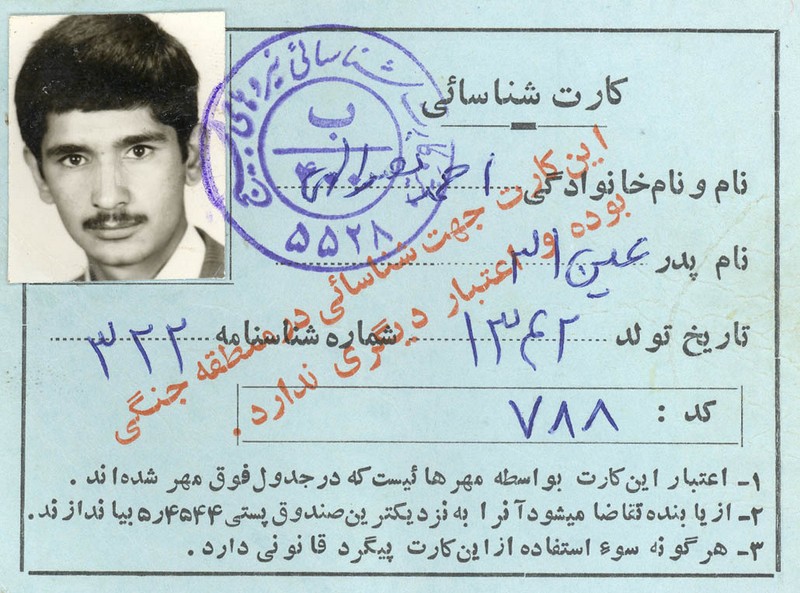 کارت شناسائی
شناسائی نیروهای بسیج
ب
۵۵۲۸
نام و نام‌خانوادگی احمد نصرالهی
نام پدر
تاریخ تولد ۱۳۴۲ شماره شناسنامه ۳۲۲
کد : ۷۸۸
این کارت جهت شناسائی در منطقه جنگی
بوده و اعتبار دیگری ندارد.
۱- اعتبار این کارت بواسطه مهر هائیست که در جدول فوق مهر شده‌اند .
۲- از یابنده تقاضا میشود آنرا به نزدیکترین صندوق پستی ۴۵۴۴ر۵ بیاندازند.
۳- هرگونه سوء استفاده از این کارت پیگرد قانونی دارد .